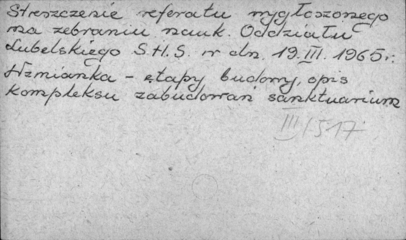 Streszczenie referatu wygłoszonego
na zebraniu nauk. Oddziału
Lubelskiego S.H.S. w dn. 19.III.1965 r.
Wzmianka - etapy budowy, opis
kompleksu zabudowań sanktuarium
III/517